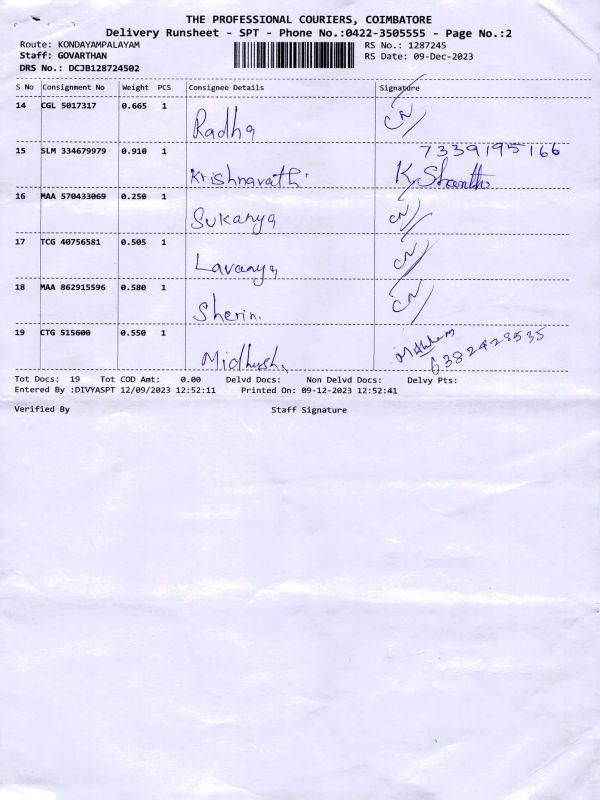 THE PROFESSIONAL COURIERS, COIMBATORE
Delivery Runsheet - SPT - Phone No.:0422-3505555 - Page No.:2
Route: KONDAYAMPALAYAM
RS No.: 1287245
Staff: GOVARTHAN
RS Date: 09-Dec-2023
DRS No.: DCJB128724502
S No Consignment No Weight PCS Consignee Details Signature
14 CGL 5017317 0.665 1 Radha CN
15 SLM 334679979 0.910 1 Krishnavathi 7339195166
K. Shanthi
16 MAA 570433069 0.250 1 Sukanya CN
17 TCG 40756581 0.505 1 Lavanya CN
18 MAA 862915596 0.580 1 Sherin. CN
19 CTG 515600 0.550 1 6382428535
Tot Docs: 19 Tot COD Amt: 0.00 Delvd Docs: Non Delvd Docs: Delvy Pts:
Entered By :DIVYASPT 12/09/2023 12:52:11 Printed On: 09-12-2023 12:52:41
Verified By Staff Signature